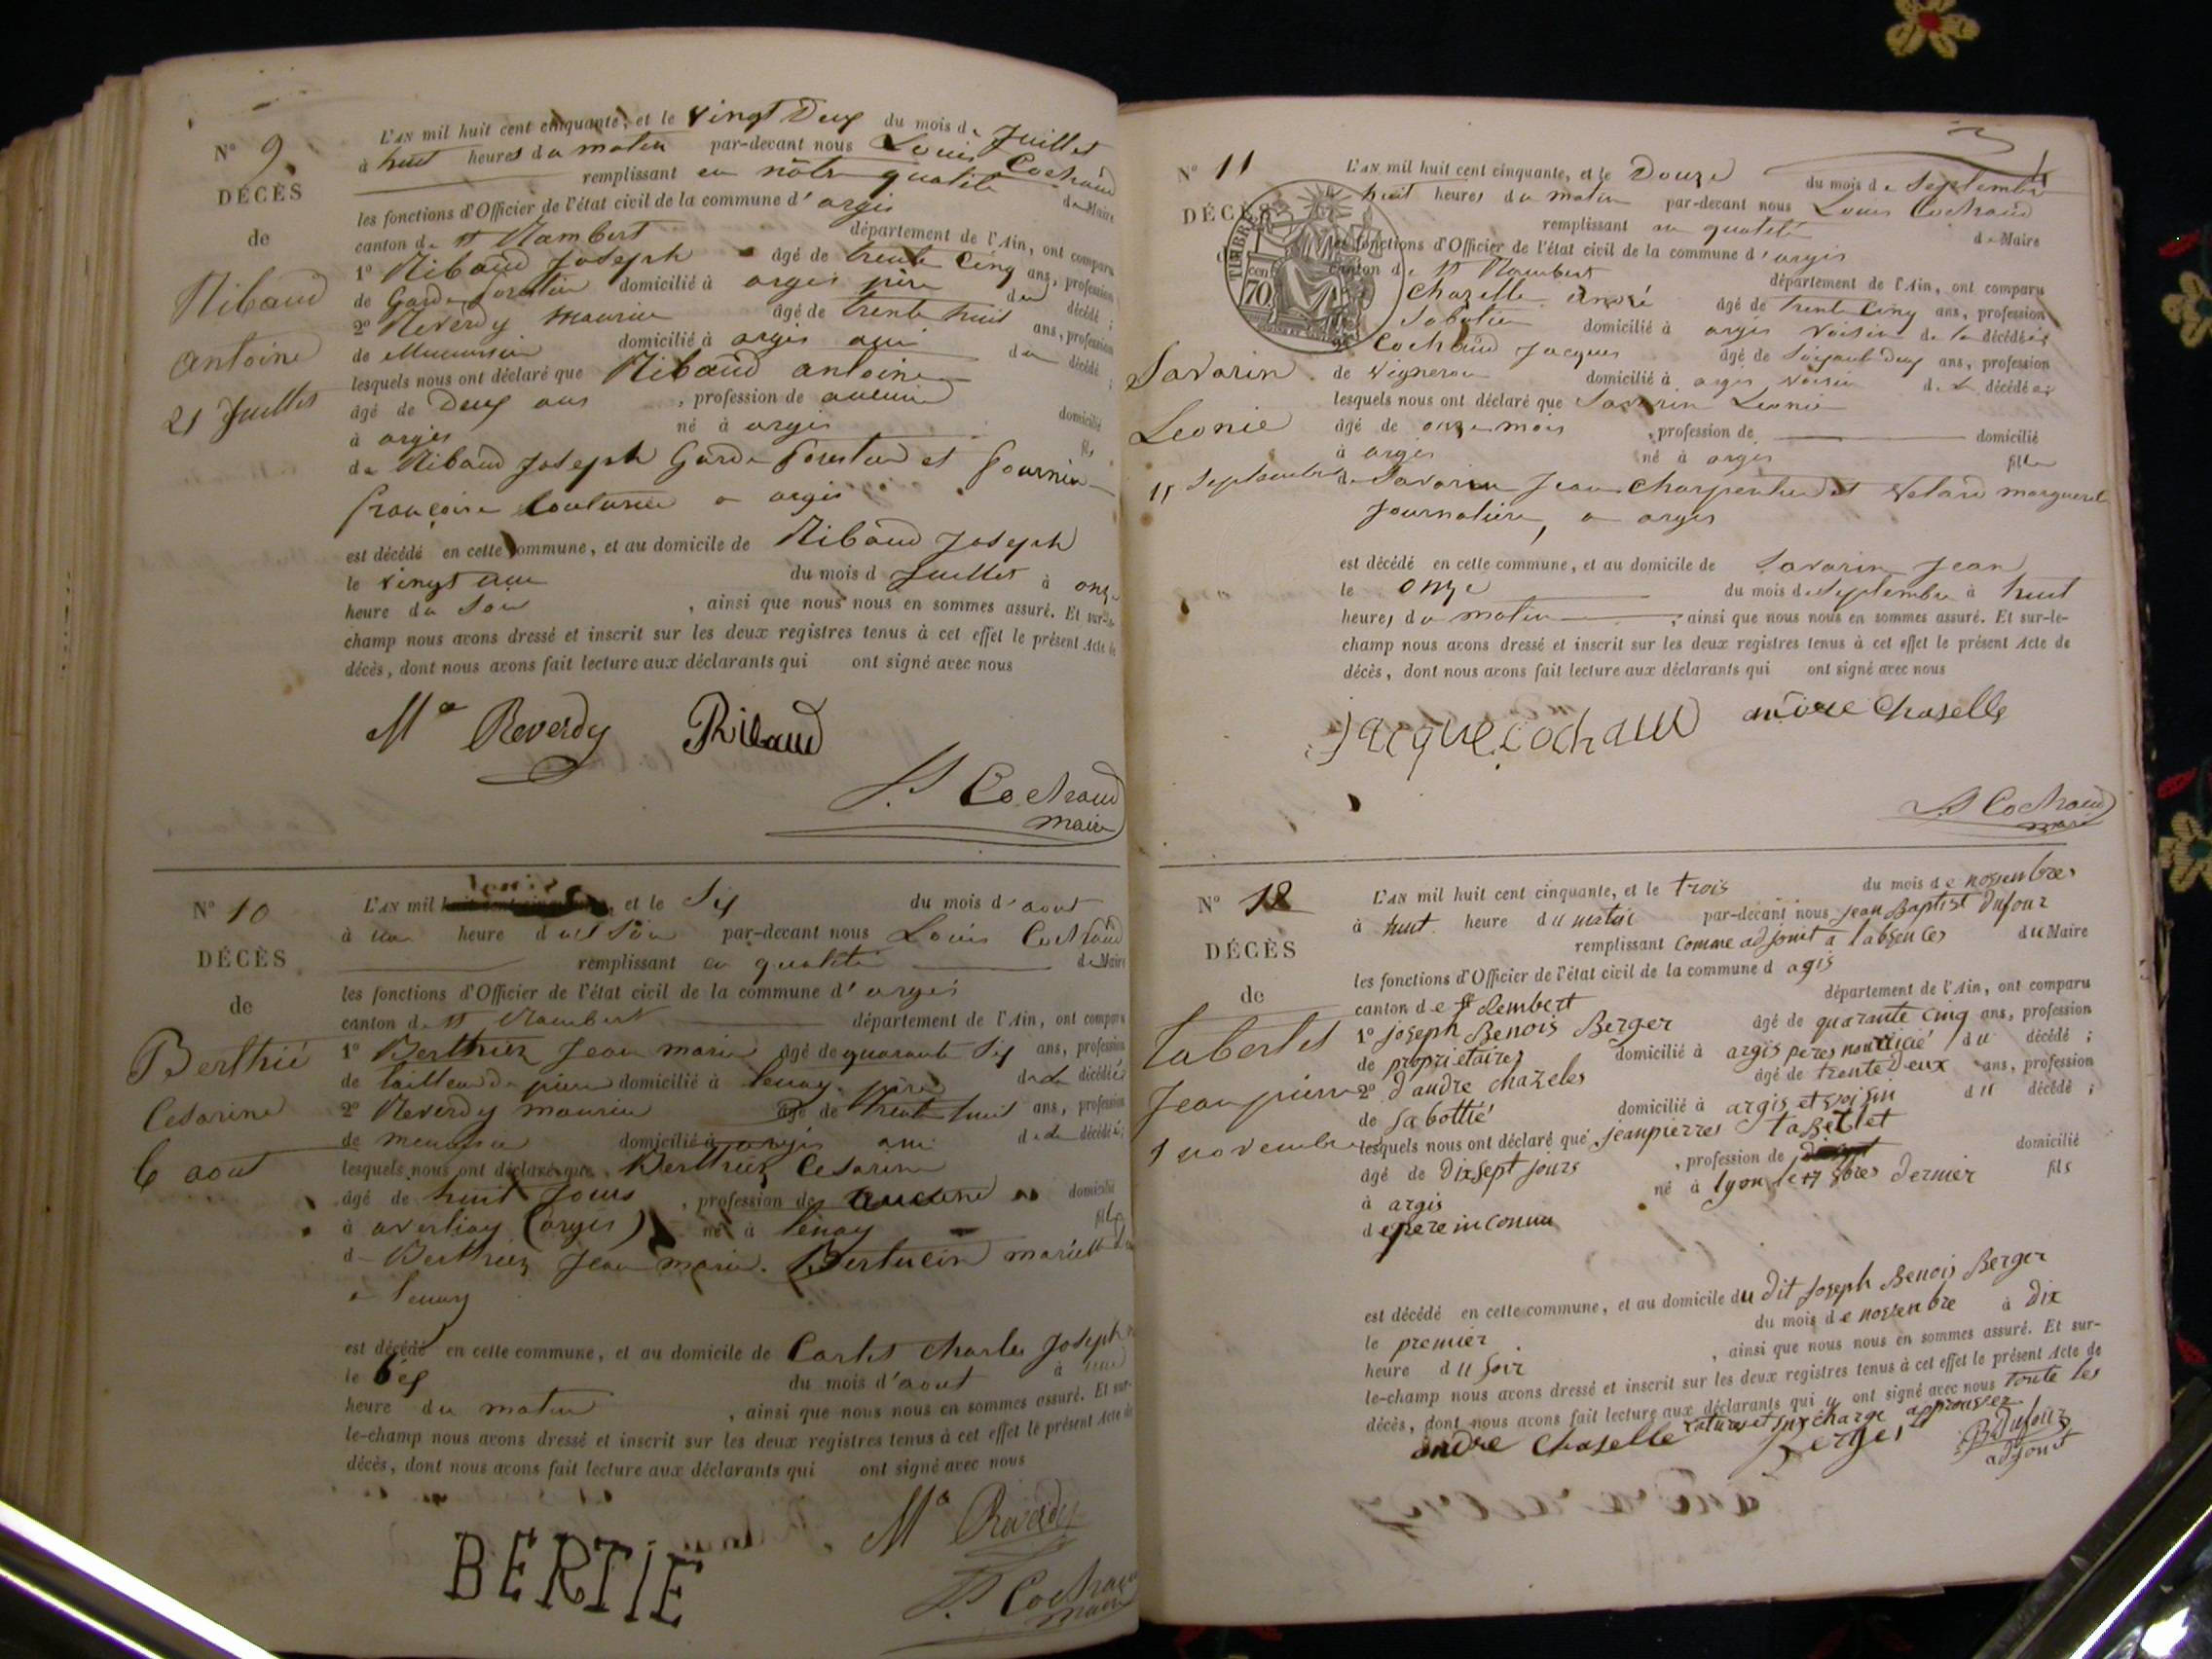 N° 9
DÉCÈS
de
Ribaud
Antoine
21 Juillet
L'AN mil huit cent cinquante, et le vingt Deux du mois de Juillet
à huit heures du matin par-devant nous Louis Cochaud
remplissant en nôtre qualité de Maire
les fonctions d'Officier de l'état civil de la commune d'argis
canton de St Rambert département de l'Ain, ont comparu
1° Ribaud Joseph âgé de trente Cinq ans, profession
de Garde forestier domicilié à argis père du décédé ;
2° Reverdy Maurice âgé de trente huit ans, profession
de domicilié à argis ami du décédé ;
lesquels nous ont déclaré que Ribaud antoine
âgé de Deux ans , profession de aucune domicilié
à argis né à argis fils
de Ribaud Joseph Garde forestier et Fournier
françoise couturière a argis
est décédé en cette commune, et au domicile de Ribaud Joseph
le vingt une du mois d Juillet à onze
heure du Soir , ainsi que nous nous en sommes assuré. Et sur-le-
champ nous avons dressé et inscrit sur les deux registres tenus à cet effet le présent Acte de
décès, dont nous avons fait lecture aux déclarants qui ont signé avec nous
Mce Reverdy Ribaud
L. Cochaud
maire
N° 10
DÉCÈS
de
Berthié
Cesarine
6 aout
L'AN mil , et le Six du mois d'aout
à une heure du Soir par-devant nous Louis Cochaud
remplissant en qualité de Maire
les fonctions d'Officier de l'état civil de la commune d'argis
canton de St Rambert département de l'Ain, ont comparu
1° Berthiez Jean marie âgé de quarante Six ans, profession
de tailleur de pierre domicilié à tenay père de la décédée
2° Reverdy maurice âgé de trente huit ans, profession
de domicilié à argis ami de la décédé ;
lesquels nous ont déclaré que Berthiez Cesarine
âgé de huit Jours , profession de aucune domicilié
à averliaz (argis) né à tenay fille
d Berthiez Jean marie. mariette
à tenay
est décédé en cette commune, et au domicile de Charles Joseph
le Six du mois d'aout à une
heure du matin , ainsi que nous nous en sommes assuré. Et sur-
le-champ nous avons dressé et inscrit sur les deux registres tenus à cet effet le présent Acte de
décès, dont nous avons fait lecture aux déclarants qui ont signé avec nous
Mce Reverdy
BERTIE
L. Cochaud
maire
N° 11
DÉCÈS
TIMBRE
cent
70
Savarin
Leonie
11 Septembre
L'AN mil huit cent cinquante, et le Douze du mois de Septembre
huit heures du matin par-devant nous Louis Cochaud
remplissant en qualité de Maire
les fonctions d'Officier de l'état civil de la commune d'argis
canton de St Rambert département de l'Ain, ont comparu
chazelle andré âgé de trente Cinq ans, profession
Sabotier domicilié à argis voisin de la décédée
2° Cochaud Jacques âgé de Soixante deux ans, profession
de vigneron domicilié à argis voisin de la décédée
lesquels nous ont déclaré que Savarin Leonie
âgé de onze mois , profession de domicilié
à argis né à argis fille
de Savarin Jean Charpentier et
Journalière, a argis
est décédé en cette commune, et au domicile de Savarin Jean
le onze du mois de Septembre à huit
heures du matin , ainsi que nous nous en sommes assuré. Et sur-le-
champ nous avons dressé et inscrit sur les deux registres tenus à cet effet le présent Acte de
décès, dont nous avons fait lecture aux déclarants qui ont signé avec nous
jacque cochaud andre Chaselle
L. Cochaud
maire
N° 12
DÉCÈS
de
Tabertet
Jean pierre
1 novembre
L'AN mil huit cent cinquante, et le trois du mois de novembres
à huit heure du matin par-devant nous jean Baptist Dufour
remplissant comme adjoint a labsences du Maire
les fonctions d'Officier de l'état civil de la commune d agis
canton de St Rembert département de l'Ain, ont comparu
1° joseph Benois Berger âgé de quarante cinq ans, profession
de proprietaires domicilié à argis peres nourricié du décédé ;
2° d'andre chazeles âgé de trente Deux ans, profession
de Sabottié domicilié à argis et voisin du décédé ;
lesquels nous ont déclaré que jeanpierres
âgé de Dix sept jours , profession de domicilié
à argis né à lyon le 17 8bres Dernier fils
de pere inconnu
est décédé en cette commune, et au domicile du Dit joseph Benois Berger
le premier du mois de novembre à Dix
heure du soir , ainsi que nous nous en sommes assuré. Et sur-
le-champ nous avons dressé et inscrit sur les deux registres tenus à cet effet le présent Acte de
décès, dont nous avons fait lecture aux déclarants qui y ont signé avec nous toute les
ratures et surcharge approuver
andre Chaselle Berger B. Dufour
adjoint